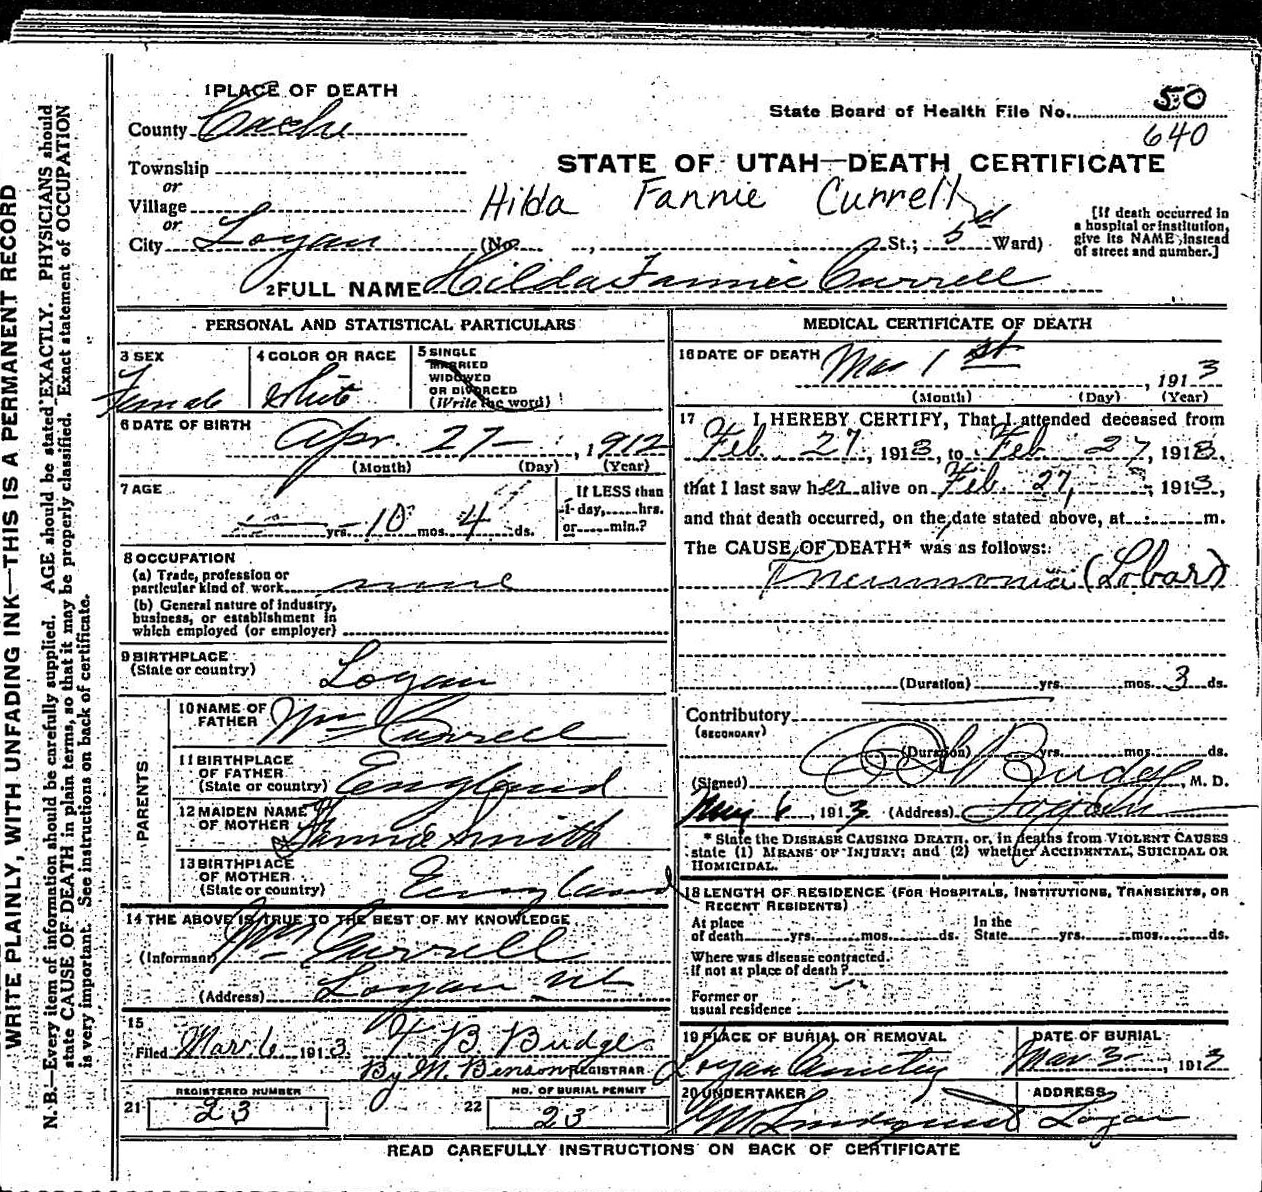 WRITE PLAINLY, WITH UNFADING INK—THIS IS A PERMANENT RECORD
N. B.—Every item of information should be carefully supplied. AGE should be stated EXACTLY. PHYSICIANS should
state CAUSE OF DEATH in plain terms, so that it may be properly classified. Exact statement of OCCUPATION
is very important. See instructions on back of certificate.
1 PLACE OF DEATH
County Cache
State Board of Health File No. 50
640
STATE OF UTAH—DEATH CERTIFICATE
Township
or
Village
or
Hilda Fannie Currell
City Logan (No. , St.; 5 Ward)
[If death occurred in
a hospital or institution,
give its NAME instead
of street and number.]
2 FULL NAME Hilda Fannie Currell
PERSONAL AND STATISTICAL PARTICULARS
3 SEX
Female
4 COLOR OR RACE
White
5 SINGLE
MARRIED
WIDOWED
OR DIVORCED
(Write the word)
6 DATE OF BIRTH
Apr. 27 , 1912
(Month) (Day) (Year)
7 AGE
yrs. 10 mos. 4 ds.
If LESS than
1 day, hrs.
or min.?
8 OCCUPATION
(a) Trade, profession or
particular kind of work none
(b) General nature of industry,
business, or establishment in
which employed (or employer)
9 BIRTHPLACE
(State or country) Logan
PARENTS
10 NAME OF
FATHER Wm Currell
11 BIRTHPLACE
OF FATHER
(State or country) England
12 MAIDEN NAME
OF MOTHER Fannie Smith
13 BIRTHPLACE
OF MOTHER
(State or country) England
14 THE ABOVE IS TRUE TO THE BEST OF MY KNOWLEDGE
(Informant) Wm Currell
(Address) Logan Ut
15
Filed Mar. 6 1913. B Budge
By M. Benson REGISTRAR
REGISTERED NUMBER
21 23
NO. OF BURIAL PERMIT
22 23
MEDICAL CERTIFICATE OF DEATH
16 DATE OF DEATH Mar 1st , 1913
(Month) (Day) (Year)
17 I HEREBY CERTIFY, That I attended deceased from
Feb. 27, 1913, to Feb 27, 1913,
that I last saw her alive on Feb. 27, 1913,
and that death occurred, on the date stated above, at m.
The CAUSE OF DEATH* was as follows:
Pneumonia (Lobar)
(Duration) yrs. mos. 3 ds.
Contributory
(SECONDARY)
(Duration) yrs. mos. ds.
(Signed) Budge, M. D.
6, 1913 (Address) Logan
* State the DISEASE CAUSING DEATH, or, in deaths from VIOLENT CAUSES
state (1) MEANS OF INJURY; and (2) whether ACCIDENTAL, SUICIDAL OR
HOMICIDAL.
18 LENGTH OF RESIDENCE (FOR HOSPITALS, INSTITUTIONS, TRANSIENTS, OR
RECENT RESIDENTS)
At place
of death yrs. mos. ds.
In the
State yrs. mos. ds.
Where was disease contracted.
if not at place of death?
Former or
usual residence
19 PLACE OF BURIAL OR REMOVAL
Logan Cemetery
DATE OF BURIAL
Mar 3 , 1913
20 UNDERTAKER
Lindquist
ADDRESS
Logan
READ CAREFULLY INSTRUCTIONS ON BACK OF CERTIFICATE